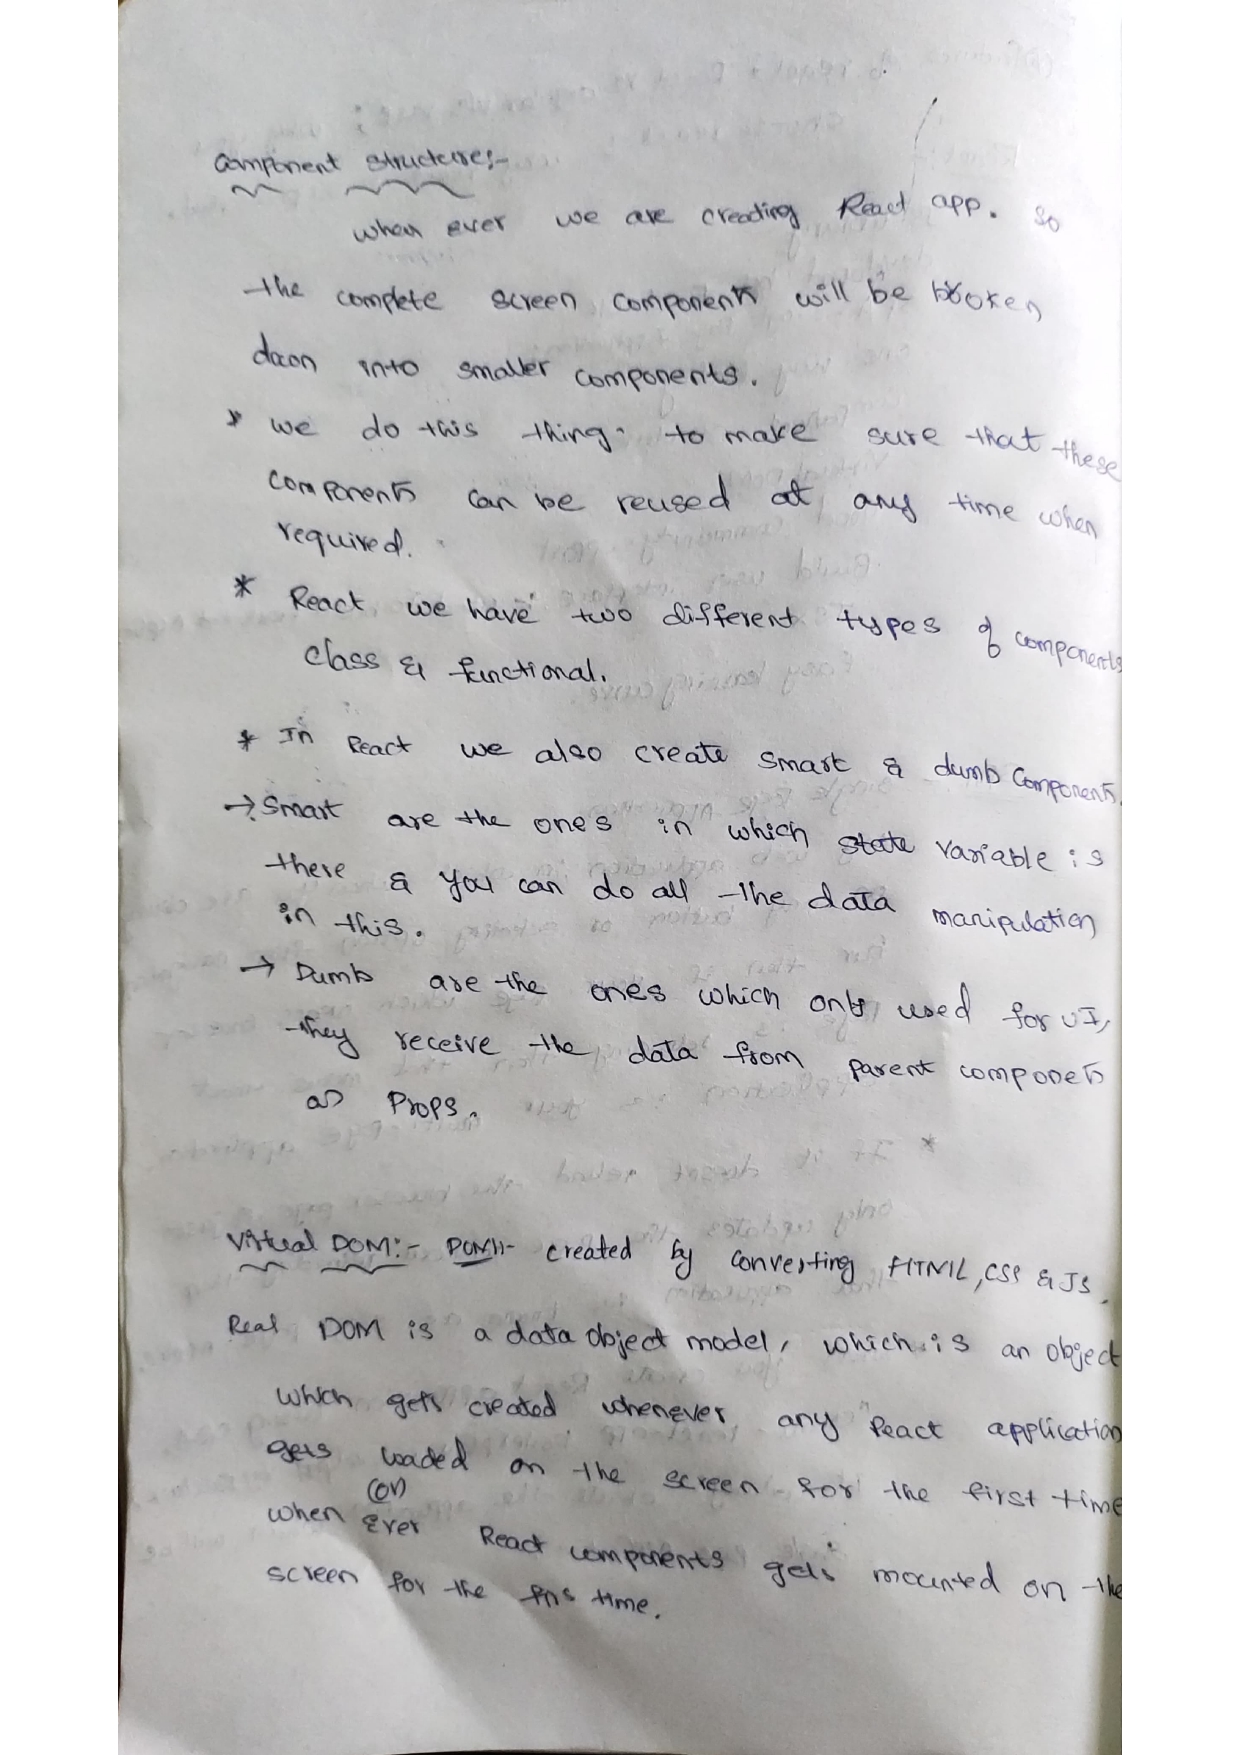 Component Structure:-
when ever we are creating React app. so
the complete screen components will be broken
down into smaller components.
* we do this thing. to make sure that these
components can be reused at any time when
required.
* React we have two different types of components
class & functional.
* In React we also create smart & dumb Components.
→ Smart are the ones in which state variable is
there & you can do all the data manipulation
in this.
→ Dumb are the ones which only used for UI,
they receive the data from parent componets
as Props.
Virtual DOM:- DOM:- created by converting HTML, CSS & JS.
Real DOM is a data object model, which is an object
which gets created whenever any React application
gets loaded on the screen for the first time
(or)
when Ever React components gets mounted on the
screen for the time.